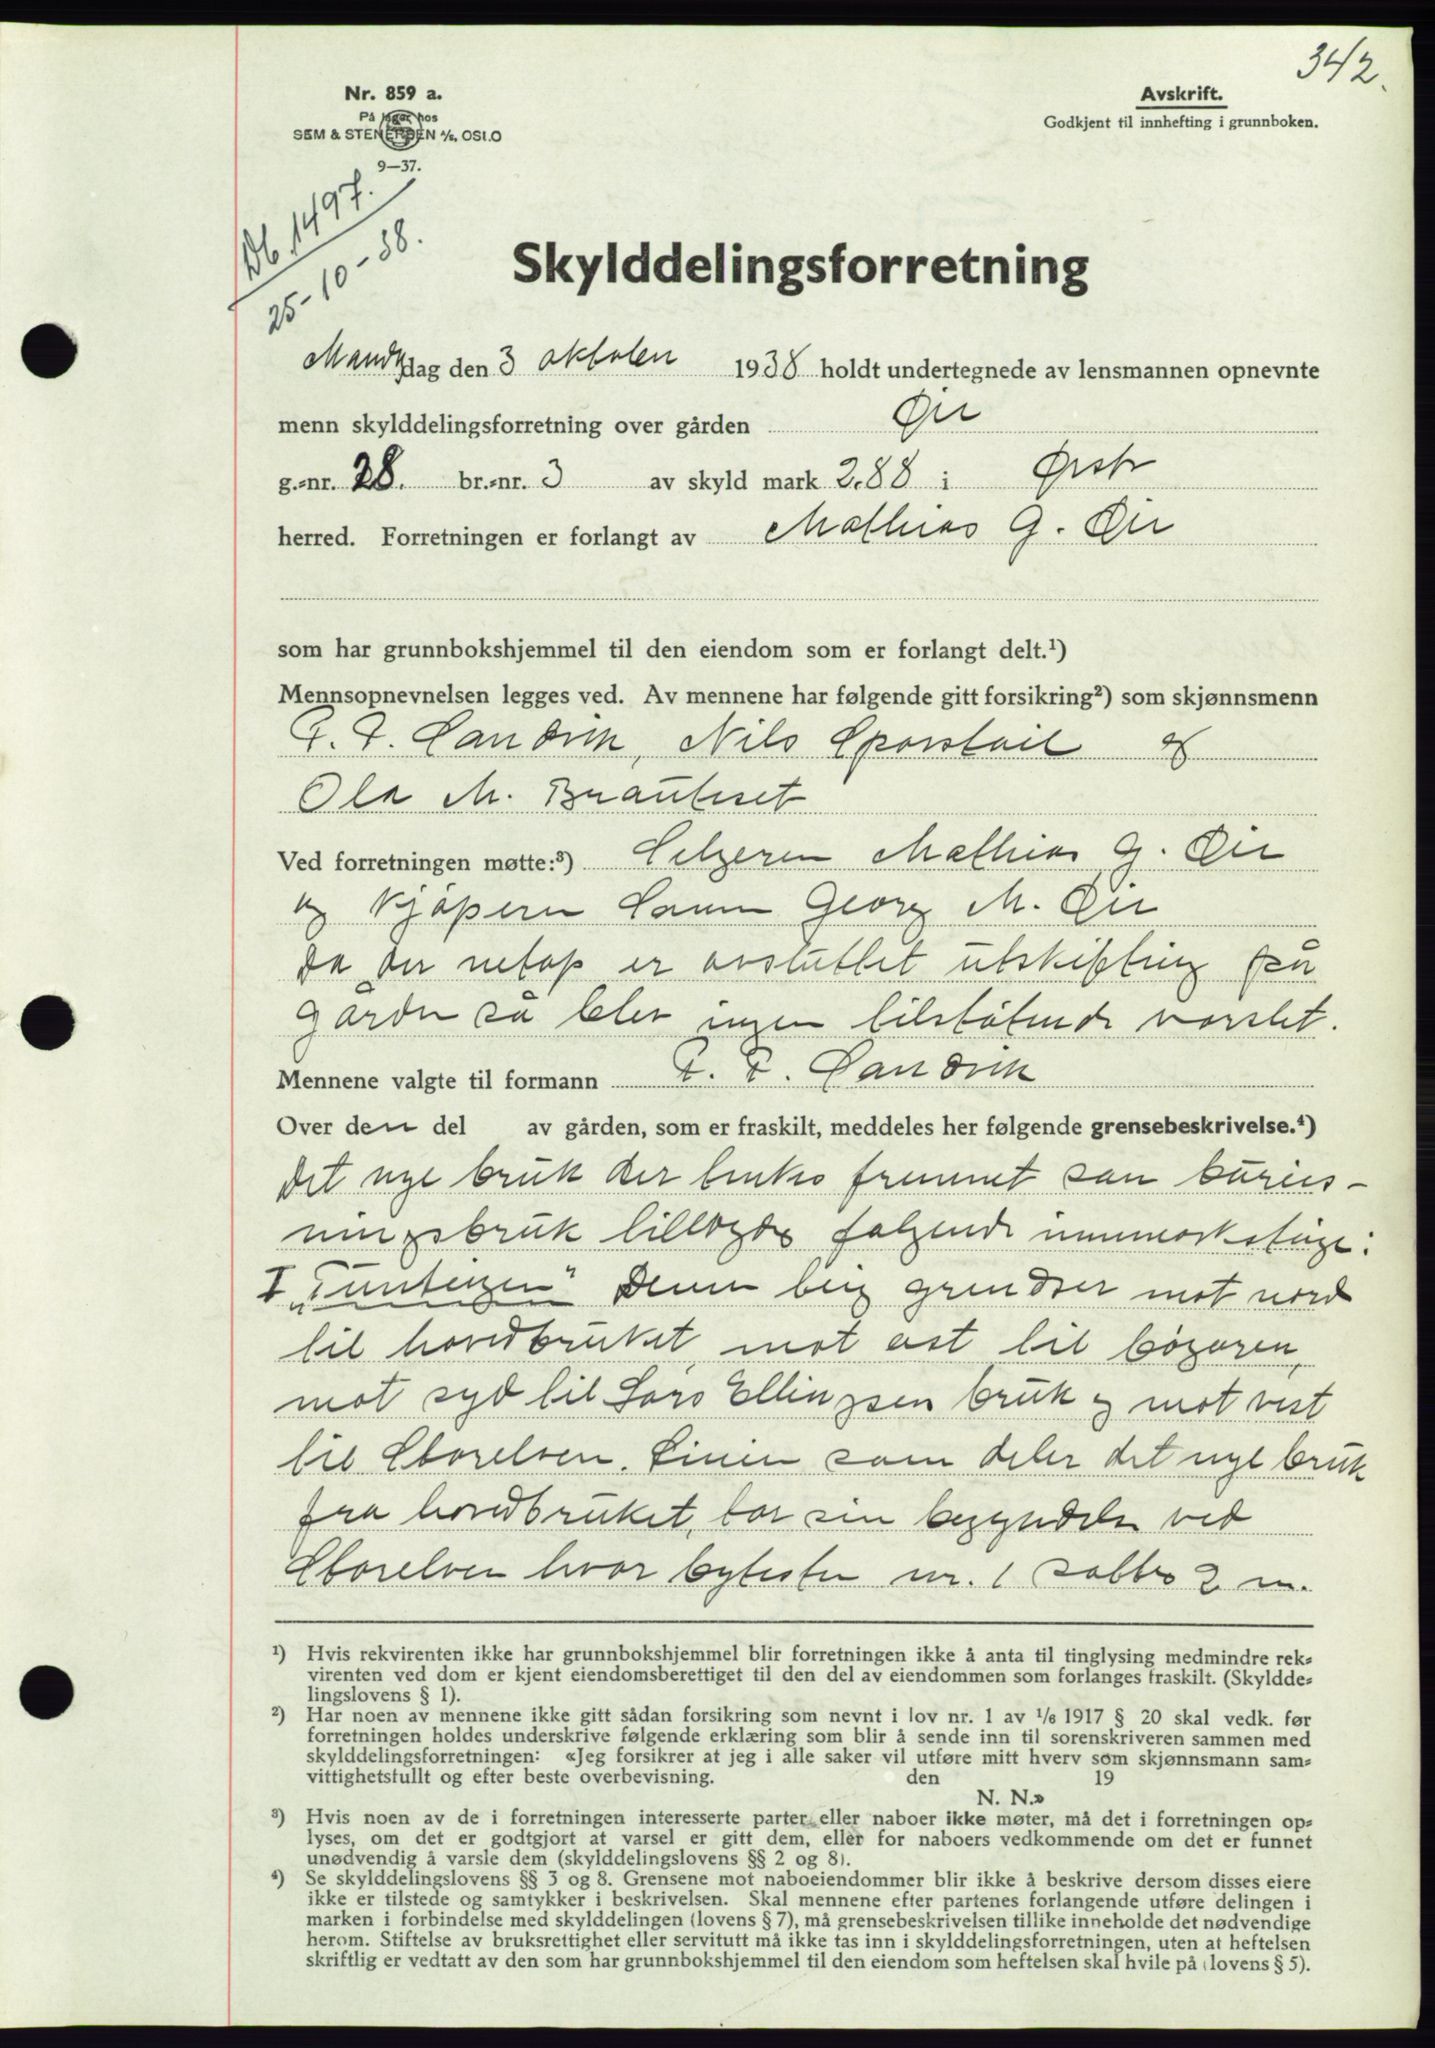 342.
Nr. 859 a.
På lager hos
SEM & STENERSEN A/S, OSLO
9—37.
Avskrift.
Godkjent til innhefting i grunnboken.
Db. 1497.
25-10-38.
Skylddelingsforretning
Mandag den 3 oktober 1938 holdt undertegnede av lensmannen opnevnte
menn skylddelingsforretning over gården Øir
g.=nr. 28. br.=nr. 3 av skyld mark 2.88 i Ørsta
herred. Forretningen er forlangt av Mathias G. Øir
som har grunnbokshjemmel til den eiendom som er forlangt delt.¹)
Mennsopnevnelsen legges ved. Av mennene har følgende gitt forsikring²) som skjønnsmenn
P. P. Sandvik, Nils Sporstøil &
Ola M. Brauteset
Ved forretningen møtte:³) Selgeren Mathias G. Øir
og kjøperen Sønnen Georg M. Øir
Da der netop er avsluttet utskifting på
gården så blev ingen tilstøtende varslet.
Mennene valgte til formann P. P. Sandvik
Over den del av gården, som er fraskilt, meddeles her følgende grensebeskrivelse.⁴)
Det nye bruk der bruks fremmet som bureis-
ningsbruk tillegges følgende innmarksteige:
I „Tunteigen“ Denne teig grendser mot nord
til hovedbruket, mot øst til bøgaren,
mot syd til Lars Ellingsen bruk og mot vest
til Storelven. Linien som deler det nye bruk
fra hovedbruket, tar sin begyndelse ved
Storelven hvor bytesten nr. 1 sattes 2 m.
¹) Hvis rekvirenten ikke har grunnbokshjemmel blir forretningen ikke å anta til tinglysing medmindre rek=
virenten ved dom er kjent eiendomsberettiget til den del av eiendommen som forlanges fraskilt. (Skyldde=
lingslovens § 1).
²) Har noen av mennene ikke gitt sådan forsikring som nevnt i lov nr. 1 av ¹/₆ 1917 § 20 skal vedk. før
forretningen holdes underskrive følgende erklæring som blir å sende inn til sorenskriveren sammen med
skylddelingsforretningen: «Jeg forsikrer at jeg i alle saker vil utføre mitt hverv som skjønnsmann sam=
vittighetsfullt og efter beste overbevisning. den 19
N. N.»
³) Hvis noen av de i forretningen interesserte parter eller naboer ikke møter, må det i forretningen op=
lyses, om det er godtgjort at varsel er gitt dem, eller for naboers vedkommende om det er funnet
unødvendig å varsle dem (skylddelingslovens §§ 2 og 8).
⁴) Se skylddelingslovens §§ 3 og 8. Grensene mot naboeiendommer blir ikke å beskrive dersom disses eiere
ikke er tilstede og samtykker i beskrivelsen. Skal mennene efter partenes forlangende utføre delingen i
marken i forbindelse med skylddelingen (lovens § 7), må grensebeskrivelsen tillike inneholde det nødvendige
herom. Stiftelse av bruksrettighet eller servitutt må ikke tas inn i skylddelingsforretningen, uten at heftelsen
skriftlig er vedtatt av den som har grunnbokshjemmel til den eiendom som heftelsen skal hvile på (lovens § 5).